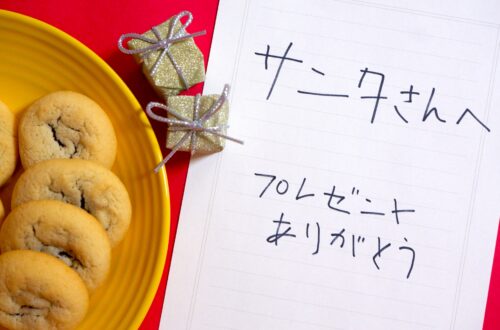 サンタさんへ
プレゼント
ありがとう